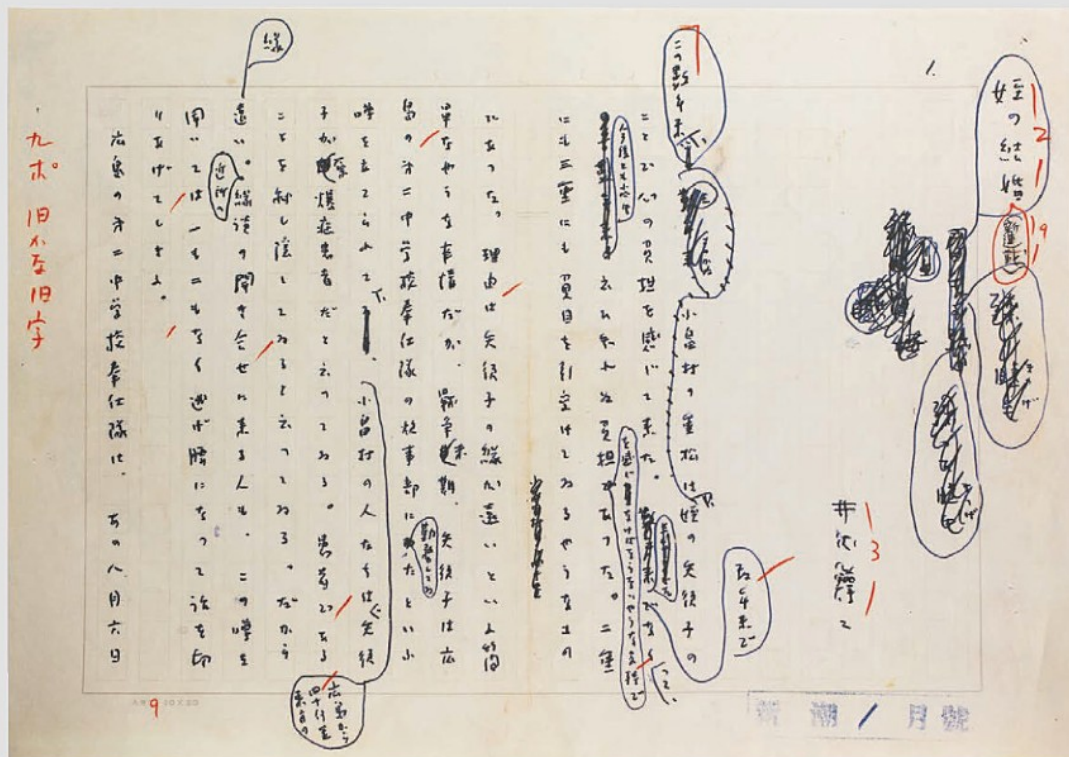 姪の結婚
新連載
井伏鱒二
この数年来、小畠村の重松は姪の矢須子の
ことで心の負担を感じて来た。数年来でなくって、
今後とも云ひ知れぬ負担を感じなければならないやうな気持であった。二重
にも三重にも負目を引受けてゐるやうなもの
であった。理由は矢須子の縁が遠いといふ簡
単なやうな事情だが、戦争末期、矢須子は広
島の才二中学校奉仕隊の炊事部に勤務してゐたといふ
噂を立てられて、広島から四十何里東方の小畠村の人たちは、矢須
子が原爆症患者だと云ってゐる。患者である
ことを秘し隠してゐると云ってゐる。だから
縁遠い。近所へ縁談の聞き合せに来る人も、この噂を
聞いては一も二もなく逃げ腰になって話を切
りあげてしまふ。
広島の才二中学校奉仕隊は、あの八月六日
九ポ 旧かな旧字
新潮 1月號